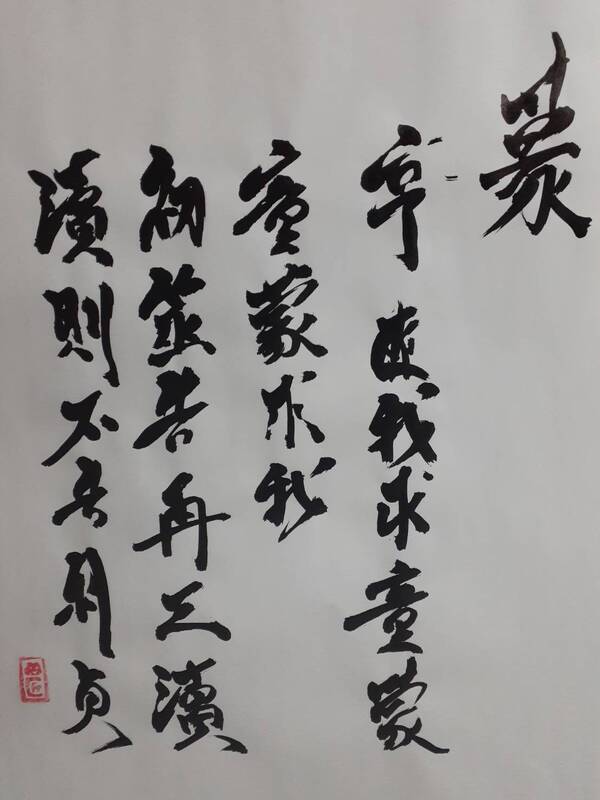 蒙
亨 匪我求童蒙
童蒙求我
初筮告再三瀆
瀆則不告利貞